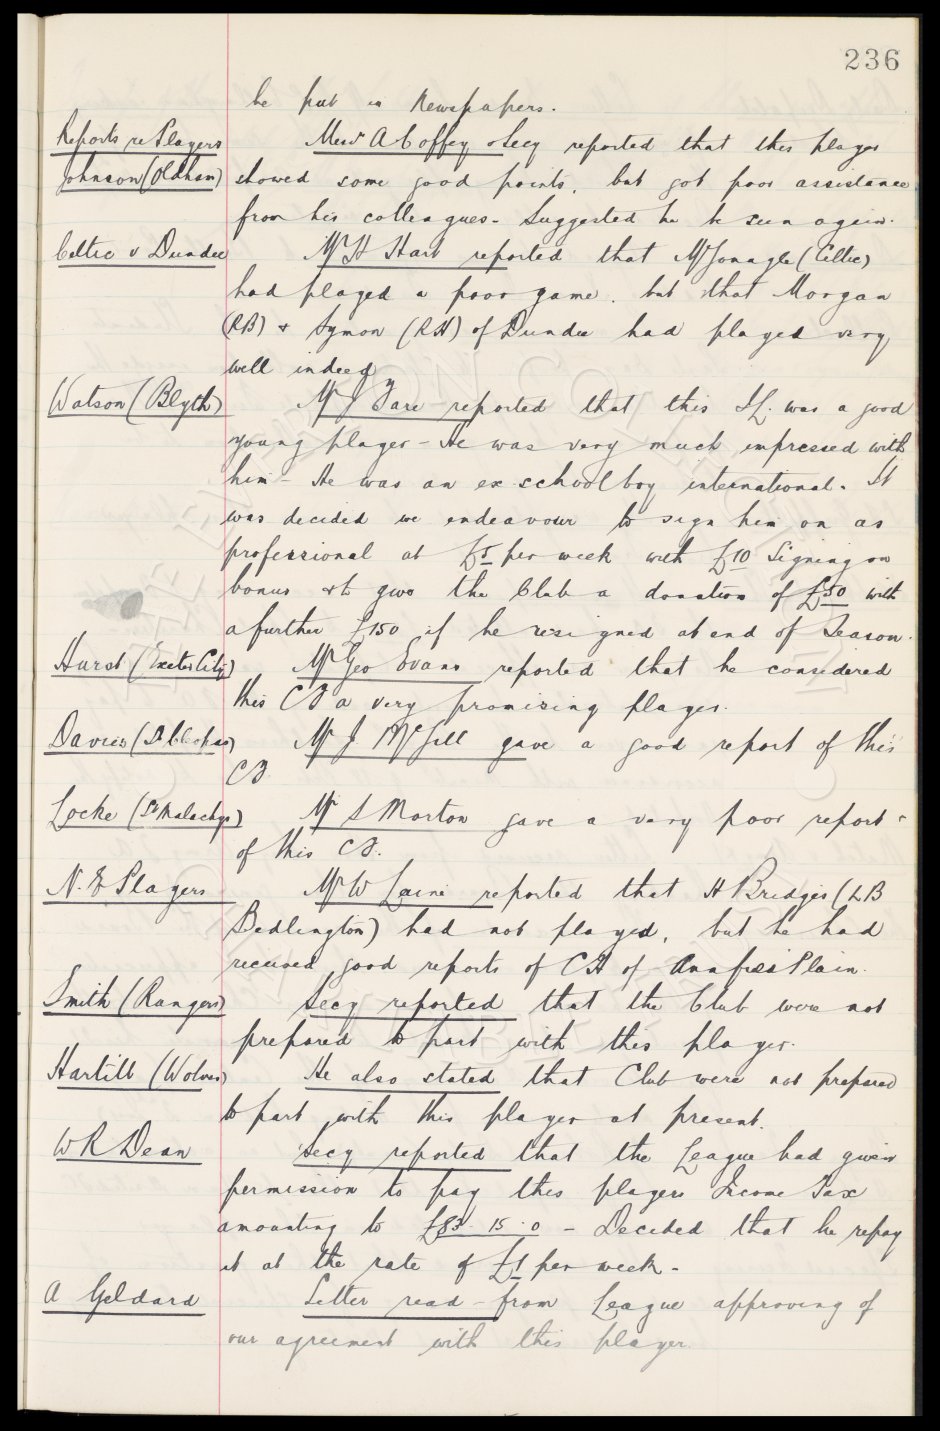 236
be put in Newspapers.
Reports re Players Messrs A Coffey & Secy reported that this player
Johnson (Oldham) showed some good points, but got poor assistance
from his colleagues. Suggested he be seen again.
Celtic v Dundee Mr H Hart reported that McGonagle (Celtic)
had played a poor game, but that Morgan
(RB) & Symon (RH) of Dundee had played very
well indeed
Watson (Blyth) Mr J Fare reported that this IL. was a good
young player - He was very much impressed with
him - He was an ex schoolboy international. It
was decided we endeavour to sign him on as
professional at £5 per week with £10 Signing on
bonus & to give the Club a donation of £50 with
a further £150 if he resigned at end of Season.
Hurst (Exeter City) Mr Geo Evans reported that he considered
this CF a very promising player.
Davies (St Cleopas) Mr J McGill gave a good report of this
CF
Locke (St Malachys) Mr S Morton gave a very poor report
of this CF.
N.E Players Mr W Laine reported that H Bridges (LB
Bedlington) had not played, but he had
received good reports of CH of Annfield Plain.
Smith (Rangers) Secy reported that the Club were not
prepared to part with this player.
Hartill (Wolves) He also stated that Club were not prepared
to part with this player at present.
W R Dean Secy reported that the League had given
permission to pay this players Income Tax
amounting to £83. 15. 0 - Decided that he repay
it at the rate of £1 per week -
A Geldard Letter read - from League approving of
our agreement with this player.